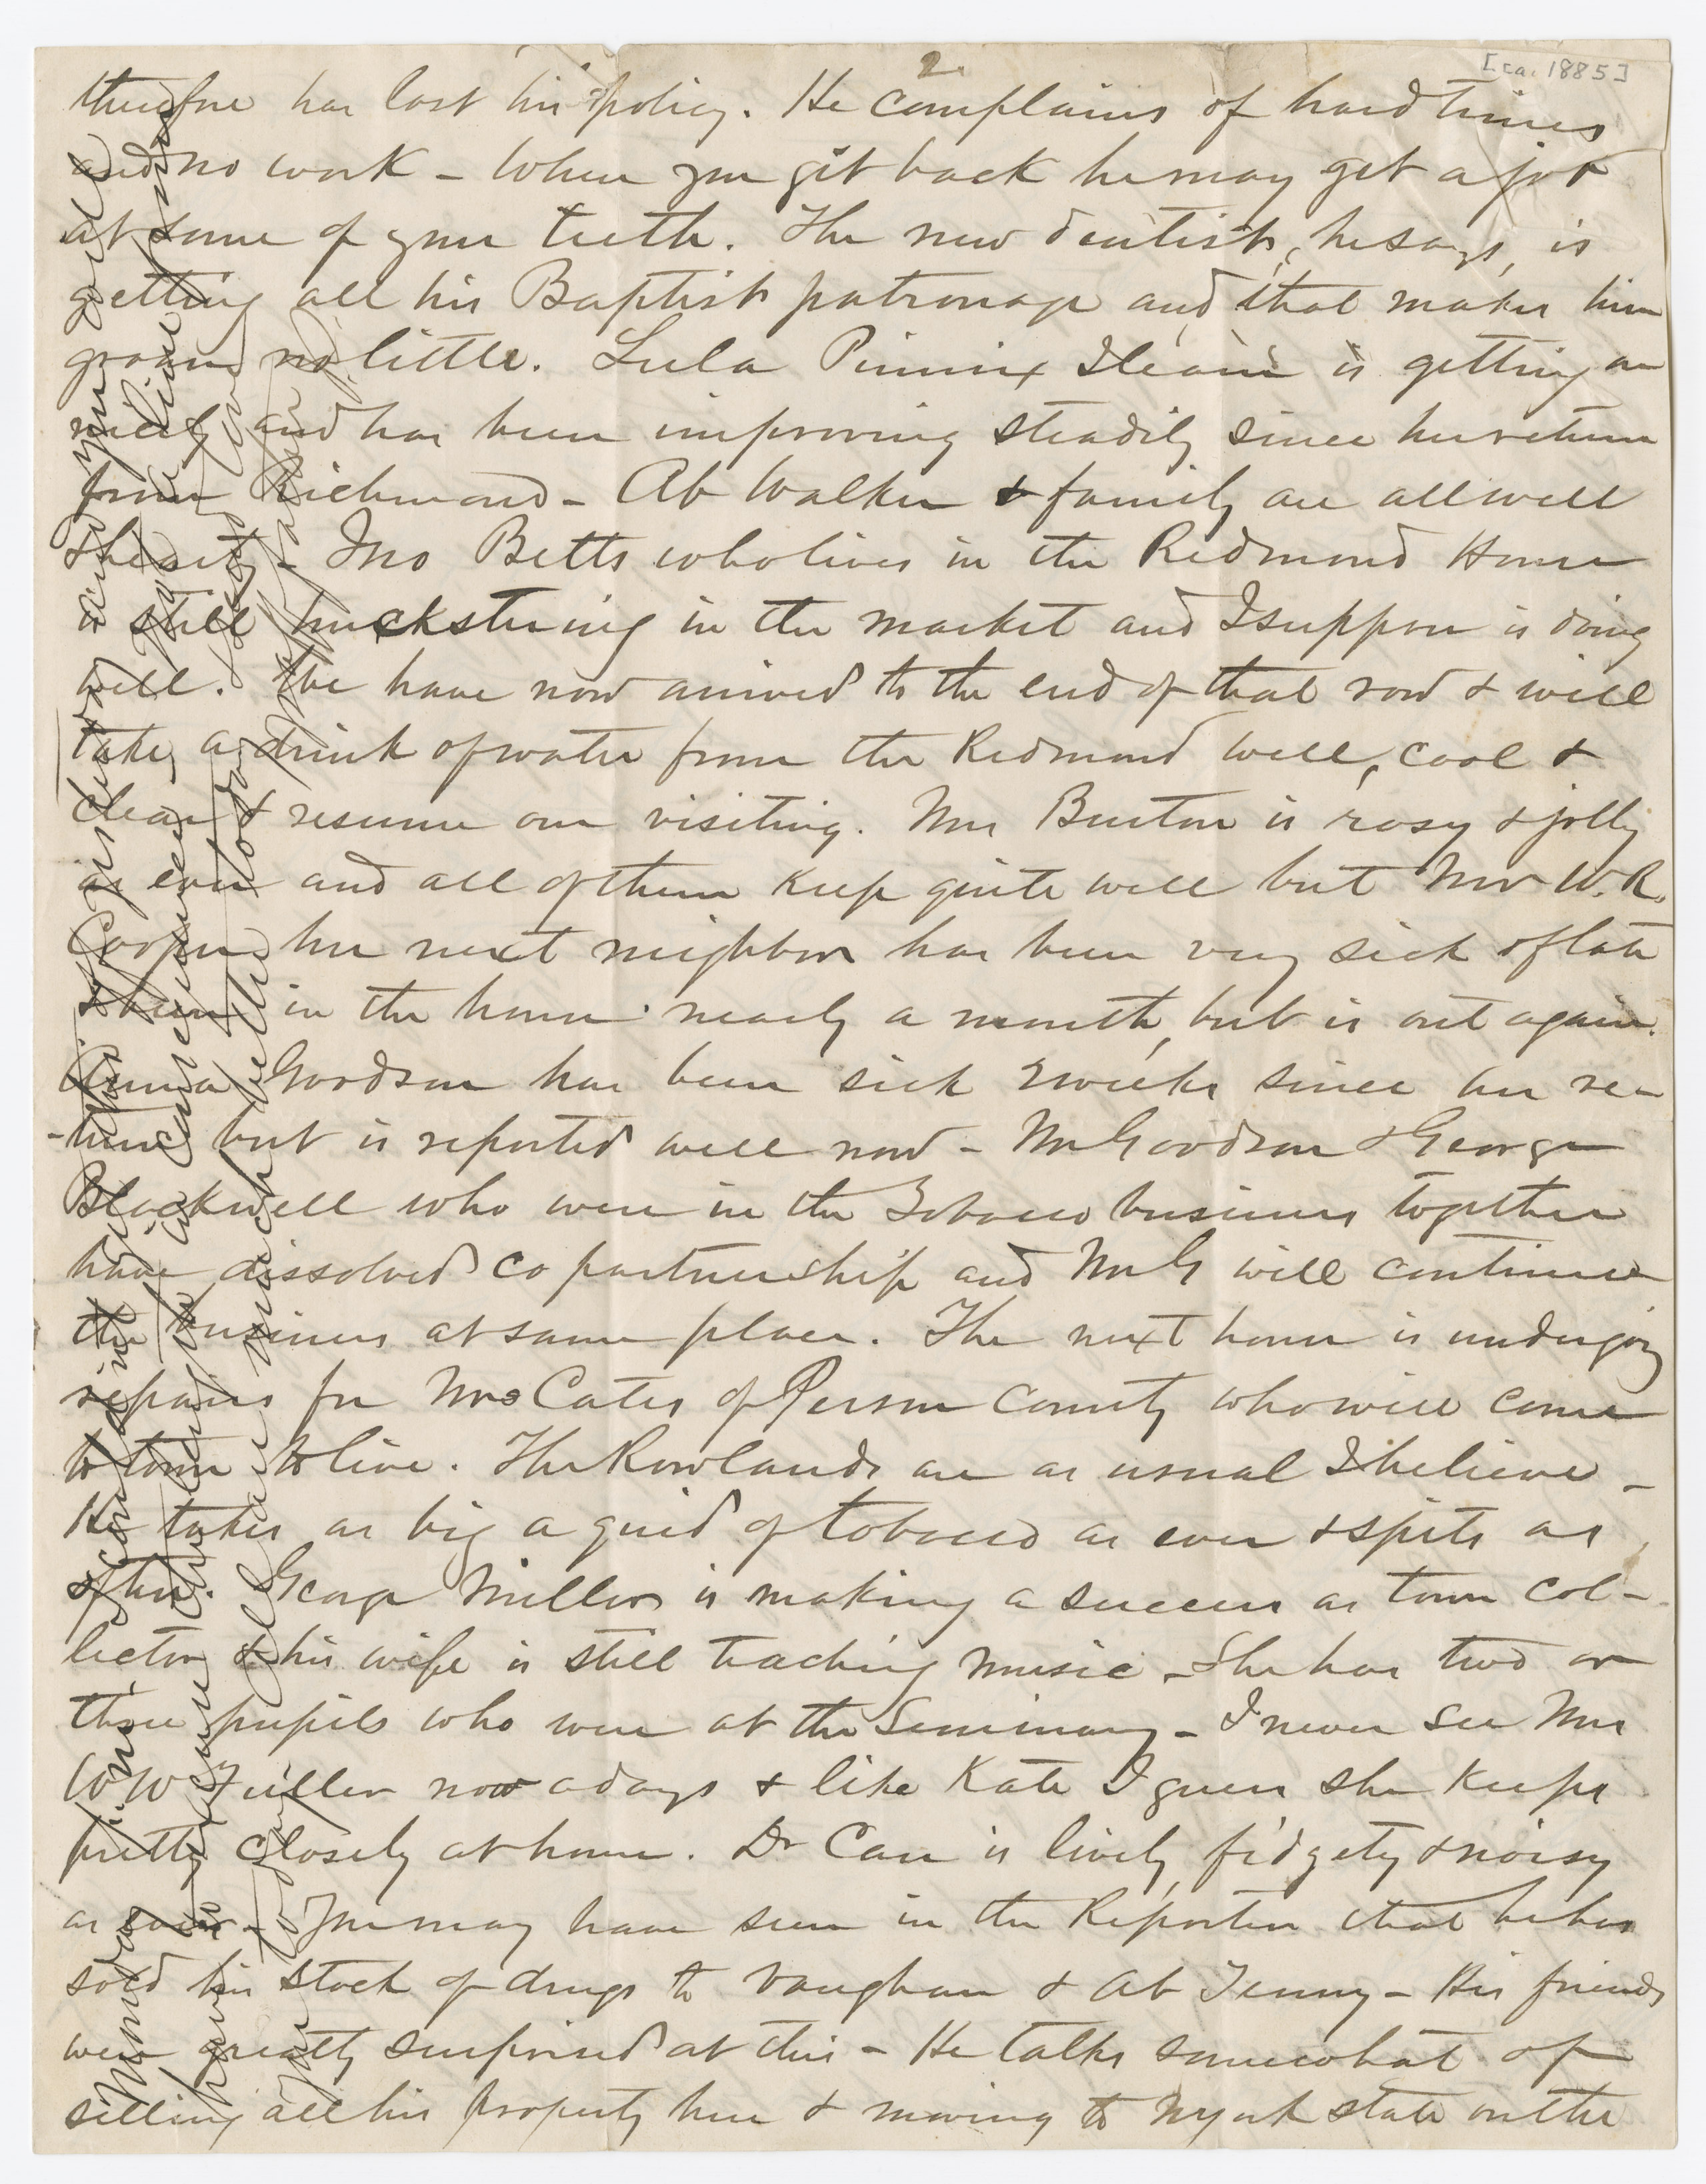 2
[ca. 1885]
therefore has lost his policy. He complains of hard times
and no work – When you get back he may get a job
at some of your teeth. The new dentist, he says, is
getting all his Baptist patronage and that makes him
groan no little. Lula Pinnix I learn is getting on
nicely and has been improving steadily since her return
from Richmond – Ab Walker & family are all well
she says – Jno Betts who lives in the Redmond House
is still huckstering in the market and I suppose is doing
well. We have now arrived to the end of that row & will
take a drink of water from the Redmond well, cool &
clear & resume our visiting. Mrs Burton is rosy & jolly
as ever and all of them keep quite well but Mrs W. R.
Cooper her next neighbor has been very sick of late
& been in the house nearly a month, but is out again.
Anna Goodson has been sick 2 weeks since her re-
-turn but is reported well now – Mr Goodson & George
Blackwell who were in the Tobacco business together
have dissolved co partnership and Mr G will continue
the business at same place. The next house is undergoing
repairs for Mrs Cates of Person County who will come
to town to live. The Rowlands are as usual I believe –
He takes as big a quid of tobacco as ever & spits as
often. George Miller is making a success as town col-
lector & his wife is still teaching music – She has two or
three pupils who were at the Seminary – I never see Mrs
W W Fuller now a days & like Kate I guess she keeps
pretty closely at home. Dr Carr is lively, fidgety & noisy
as ever – You may have seen in the Reporter that he has
sold his stock of drugs to Vaughan & Ab Tenny – His friends
were greatly surprised at this – He talks somewhat of
selling all his property here & moving to N york state on the